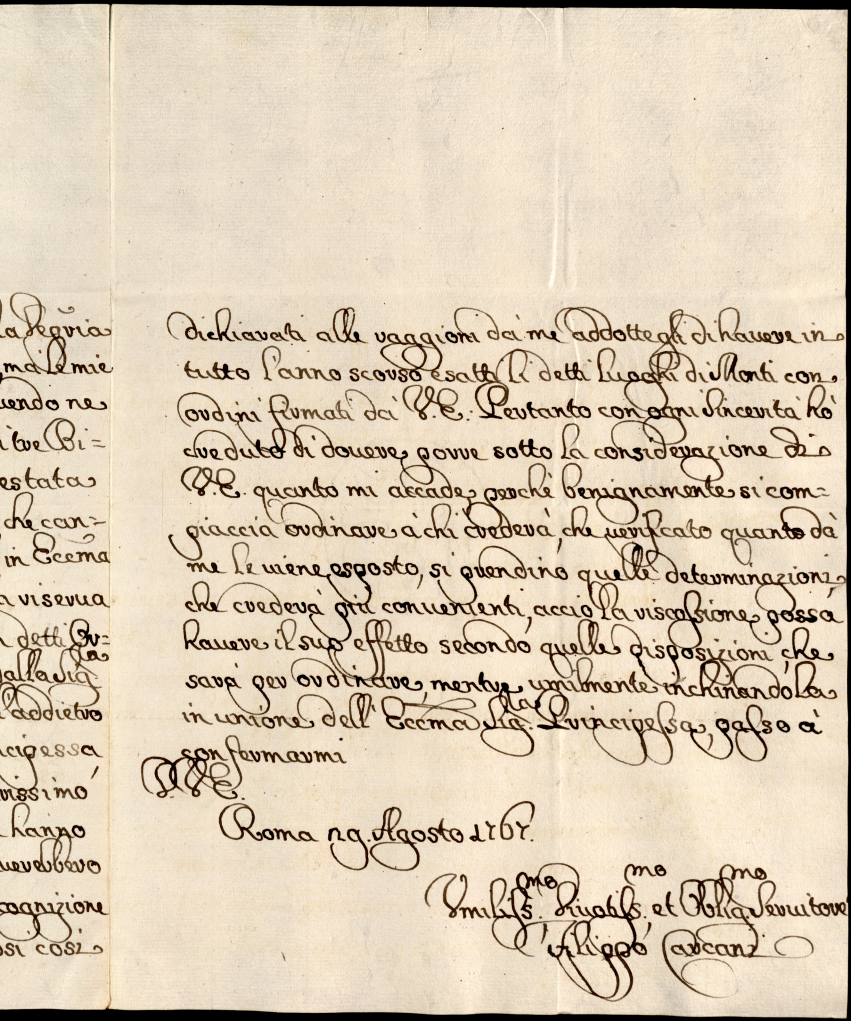 la Segria
ma le mie
uendo ne
i tre Bi=
estata
che can=
in Eccma
a riserua
detti Or=
dalla Sigra
l'addietro
ncipessa
rissimo
hanno
uerebbero
cognizione
osi così
dichiarati alle raggioni da me addottegli di hauere in
tutto l'anno scorso esatti li detti Luoghi di Monti con
ordini firmati da V.E. Pertanto con ogni Sincerità hò
creduto di douere porre sotto la considerazione di
V.E. quanto mi accade, perche benignamente si com=
piaccia ordinare à chi crederà, che uerificato quanto dà
me le uiene esposto, si prendino quelle determinazioni
che crederà più conuenienti, acciò la riscossione possa
hauere il suo effetto secondo quelle disposizioni, che
sarà per ordinare, mentre umilmente inchinandola
in unione dell' Eccma Sigra Principessa, passo à
confermarmi
D. V.E.
Roma 29. Agosto 1767.
Vmiliss.mo Diuotiss.mo et Obblig.mo Seruitore
Filippo Carcani